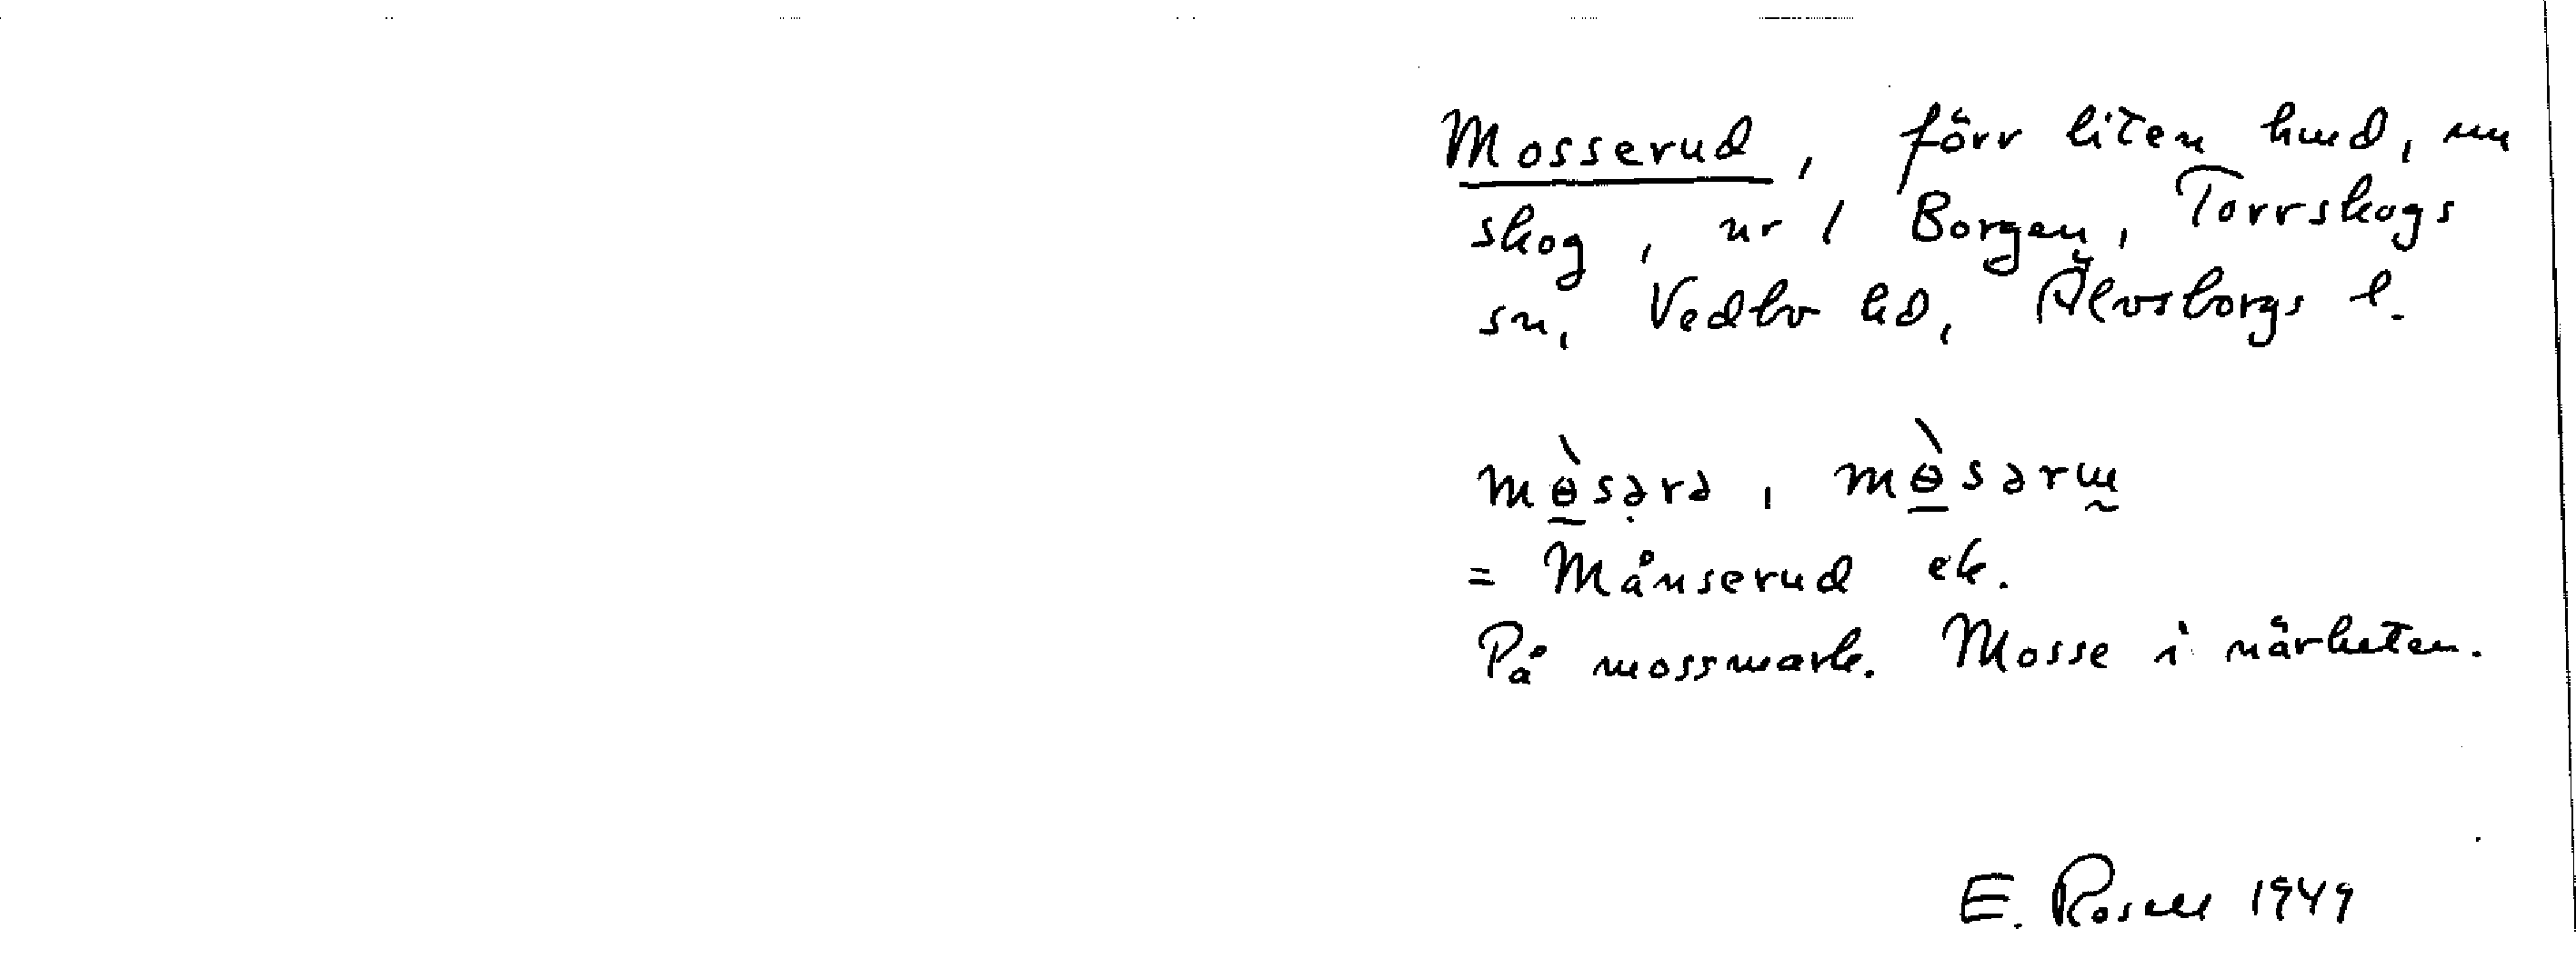 Mosserud, förr liten hmd, nu
skog, nr 1 Borgen, Torrskogs
sn, Vedbo hd, Älvsborgs l.
mө̀sərə, mө̀sərɯ
= Månserud ek.
På mossmark. Mosse i närheten.
E. Rosell 1949